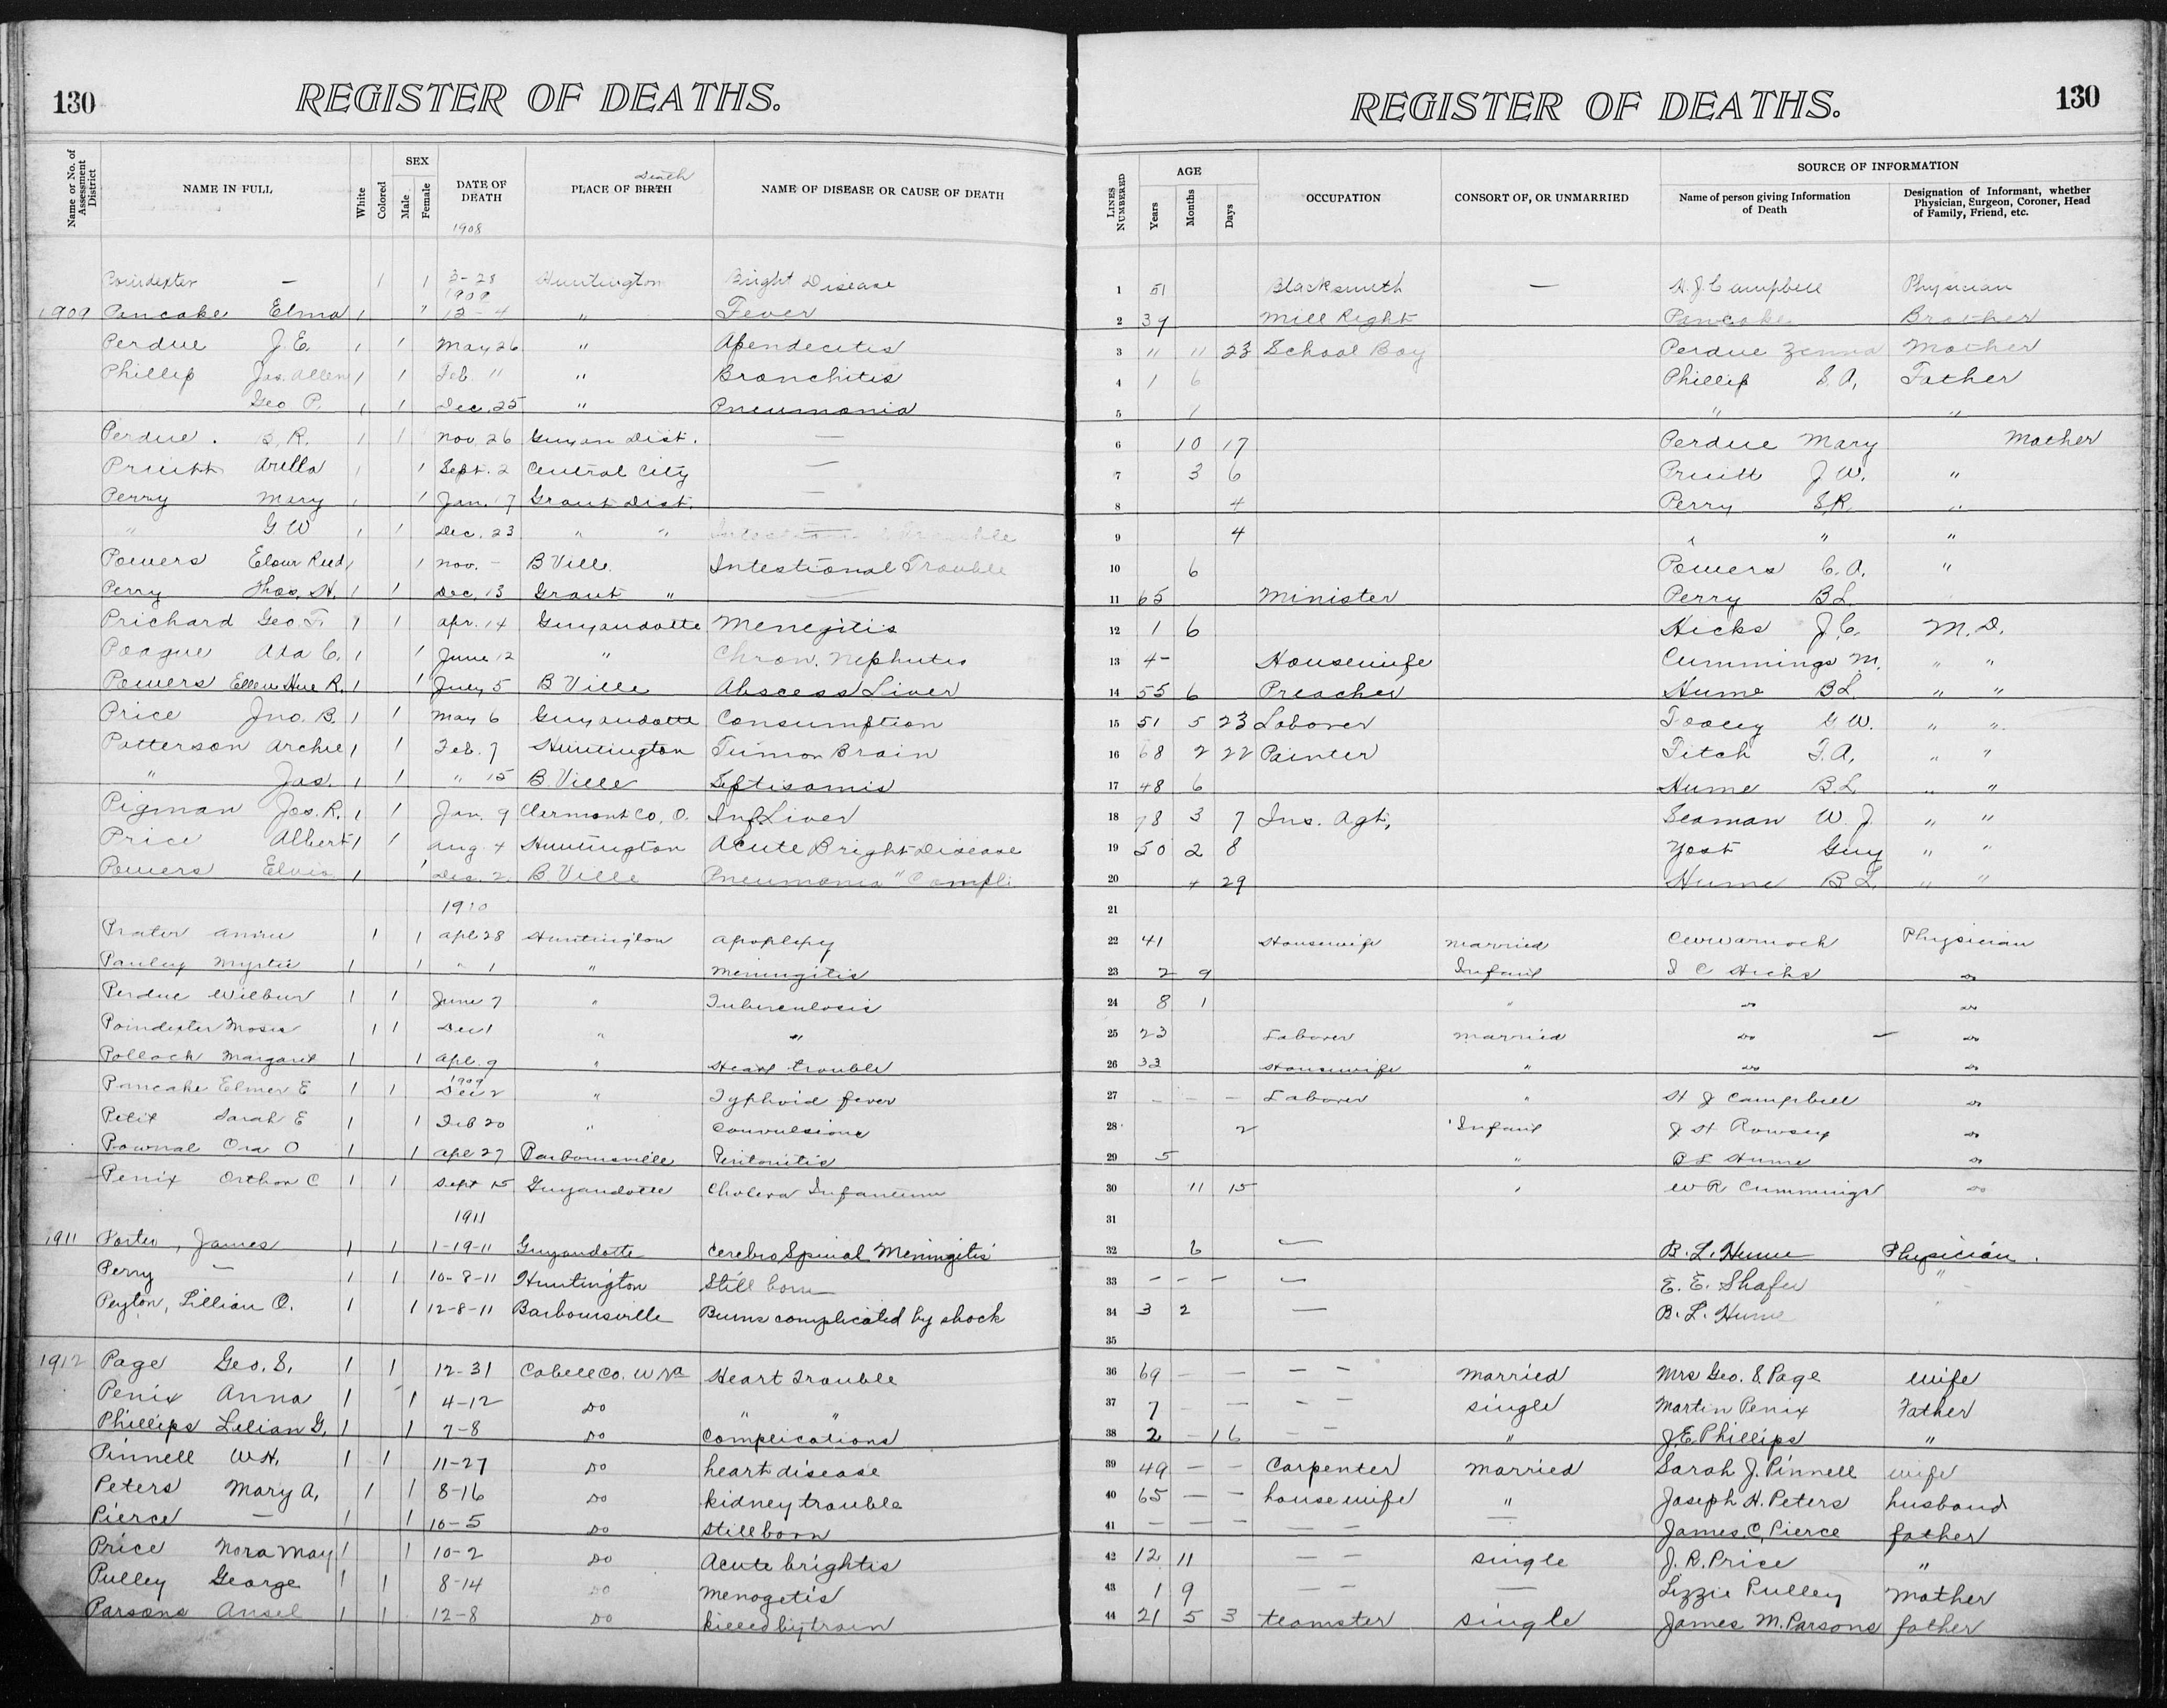 130
REGISTER OF DEATHS.
Name or No. of Assessment District
NAME IN FULL
White
Colored
SEX
Male
Female
DATE OF DEATH
PLACE OF BIRTH Death
NAME OF DISEASE OR CAUSE OF DEATH
1908
Poindexter — 1 1 3-28 Huntington Bright Disease
1909
1909 Pancake Elma 1 " 12-4 " Fever
Perdue J.E. 1 1 May 26 " Apendecitis
Phillip Jas. Allen 1 1 Feb. 11 " Bronchitis
Geo P. 1 1 Dec. 25 " Pneumonia
Perdue. B. R. 1 1 Nov. 26 Guyan Dist. —
Pruitt Arella 1 1 Sept. 2 Central City —
Perry Mary 1 1 Jan. 17 Grant Dist. —
" G W 1 1 Dec. 23 " "
Powers Elour Reed 1 1 Nov. - B Ville. Intestional Trouble
Perry Thos. H. 1 1 Dec. 13 Grant " —
Prichard Geo. F. 1 1 Apr. 14 Guyandotte Menegitis
Poague Ada C. 1 1 June 12 " Chron. Nephutis
Powers Ellen Hue R. 1 1 July 5 B Ville Abscess Liver
Price Jno. B. 1 1 May 6 Guyandotte Consumption
Patterson Archie 1 1 Feb. 7 Huntington Tumor Brain
" Jas. 1 1 " 15 B. Ville Septisamis
Pigman Jos. R. 1 1 Jan. 9 Clermont Co, O. Inf. Liver
Price Albert 1 1 Aug. 4 Huntington Acute Bright Disease
Powers Elvis 1 1 Dec. 2 B. Ville Pneumonia "Compli
1910
Prater Annie 1 1 Apl 28 Huntington Apoplepy
Pauley Myrtie 1 1 " 1 " Meningitis
Perdue Wilbur 1 1 June 7 " Tuberculosis
Poindexter Moses 1 1 Dec 1 " "
Pollock Margaret 1 1 Apl. 9 " Heart trouble
1909
Pancake Elmer E 1 1 Dec 2 " Typhoid fever
Petit Sarah E 1 1 Feb 20 " Convulsions
Pownal Ora O 1 1 Apl 27 Barboursville Peritonitis
Penix Orthor C 1 1 Sept 15 Guyandotte Cholera Infantum
1911
1911 Porter, James 1 1 1-19-11 Guyandotte Cerebro Spinal Meningitis
Perry — 1 1 10-8-11 Huntington Still born
Peyton, Lillian O. 1 1 12-8-11 Barboursville Burns complicated by shock
1912 Page Geo. S. 1 1 12-31 Cabell Co. W Va Heart Trouble
Penix Anna 1 1 4-12 Do " "
Phillips Lilian G. 1 1 7-8 Do Complications
Pinnell W H. 1 1 11-27 Do heart disease
Peters Mary A. 1 1 8-16 Do kidney trouble
Pierce — 1 1 10-5 Do stillborn
Price Nora May 1 1 10-2 Do Acute brightis
Pulley George 1 1 8-14 Do Menogetis
Parsons Ansel 1 1 12-8 Do killed by train
130
REGISTER OF DEATHS.
LINES NUMBERED
AGE
Years
Months
Days
OCCUPATION
CONSORT OF, OR UNMARRIED
SOURCE OF INFORMATION
Name of person giving Information of Death
Designation of Informant, whether Physician, Surgeon, Coroner, Head of Family, Friend, etc.
1 51 Blacksmith — H. J. Campbell Physician
2 39 Mill Right Pancake Brother
3 " 11 23 School Boy Perdue Zenna Mother
4 1 6 Phillip S. A. Father
5 1 " "
6 10 17 Perdue Mary Mother
7 3 6 Pruitt J W. "
8 4 Perry S.R. "
9 4 " " "
10 6 Powers C. A. "
11 65 Minister Perry B L
12 1 6 Hicks J. C. M. D.
13 4- Housewife Cummings M. " "
14 55 6 Preacher Hume B L. " "
15 51 5 23 Laborer Tooley G W. " "
16 68 2 22 Painter Fitch F. A. " "
17 48 6 Hume B. L " "
18 78 3 7 Ins. Agt. Seaman W. J. " "
19 50 2 8 Yost Guy " "
20 4 29 Hume B L. " "
21
22 41 Housewife Married Physician
23 2 9 Infant J C Hicks Do
24 8 1 " Do Do
25 23 Laborer Married Do — Do
26 33 Housewife " Do Do
27 — — — Laborer " H J Campbell Do
28 2 Infant J H Rowsey Do
29 5 " B L Hume Do
30 11 15 " W R Cummings Do
31
32 6 — B. L. Hume Physician.
33 — — — — E. E. Shafer "
34 3 2 — B. L. Hume "
35
36 69 — — — — Married Mrs Geo. S. Page wife
37 7 — — — — single Martin Penix Father
38 2 — 16 — — " J.E. Phillips "
39 49 — — Carpenter Married Sarah J. Pinnell wife
40 65 — — housewife " Joseph H. Peters husband
41 — — — — — — James. C. Pierce father
42 12 11 — — single J. R. Price "
43 1 9 — — — Lizzie Pulley Mother
44 21 5 3 teamster single James M. Parsons father